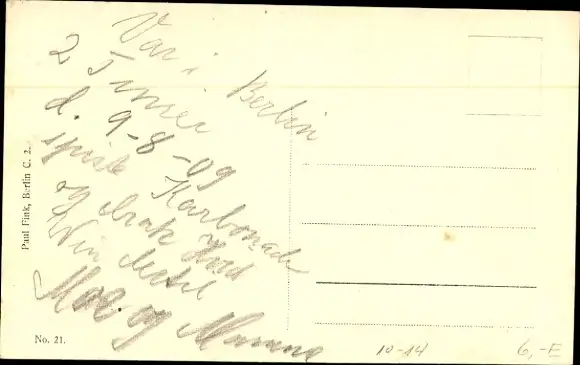 Var i Berlin
2 Timer
d. 9-8-09
spiste Karbonade
og drak Hvid
Vin dertil
Moe og Mamma
Paul Fink, Berlin C. 2.
No. 21.
10-14
6,-E